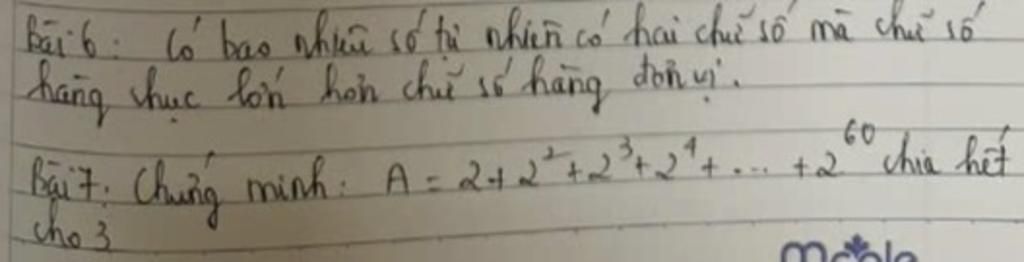 Bài 6: Có bao nhiêu số tự nhiên có hai chữ số mà chữ số
hàng chục lớn hơn chữ số hàng đơn vị.
Bài 7: Chứng minh: A = 2 + 2² + 2³ + 2⁴ + ... + 2⁶⁰ chia hết
cho 3